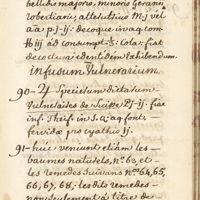 bellidis majoris, minoris Geranii
robertiani, althetussius M. j vel
aa p. j - ij. decoque in aq. com
ad consumpt. Cola: fiat
decoctum eodentidem exhibendum.
infusum Vulnerarium.
90-♃ Specierum dictarum
Vulneraires de Suisse P j - ij. fiat
inf. Theif. in S. q. aq. font.
fervida pro cyathis ij.
91- huc veniunt etiam les
baumes naturels, n.° 63, et
les remedes suivans n.os 64, 65,
66, 67, 68, les dits remedes
non seulement à titre de